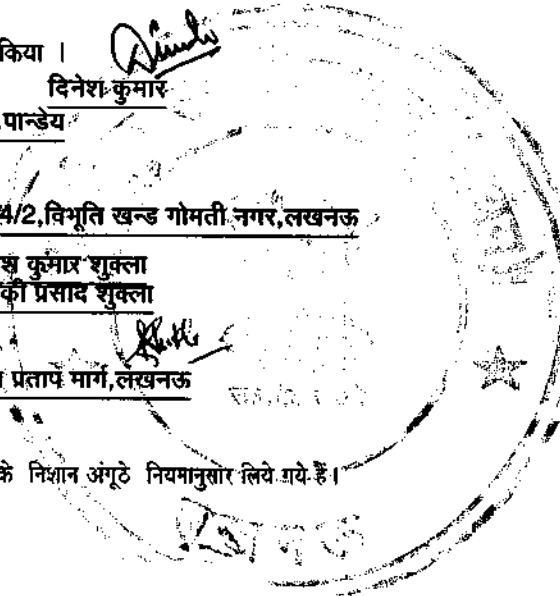 किया ।
दिनेश कुमार
पान्डेय
4/2,विभूति खन्ड गोमती नगर,लखनऊ
श कुमार शुक्ला
की प्रसाद शुक्ला
प्रताप मार्ग,लखनऊ
के निशान अंगूठे नियमानुसार लिये गये हैं।